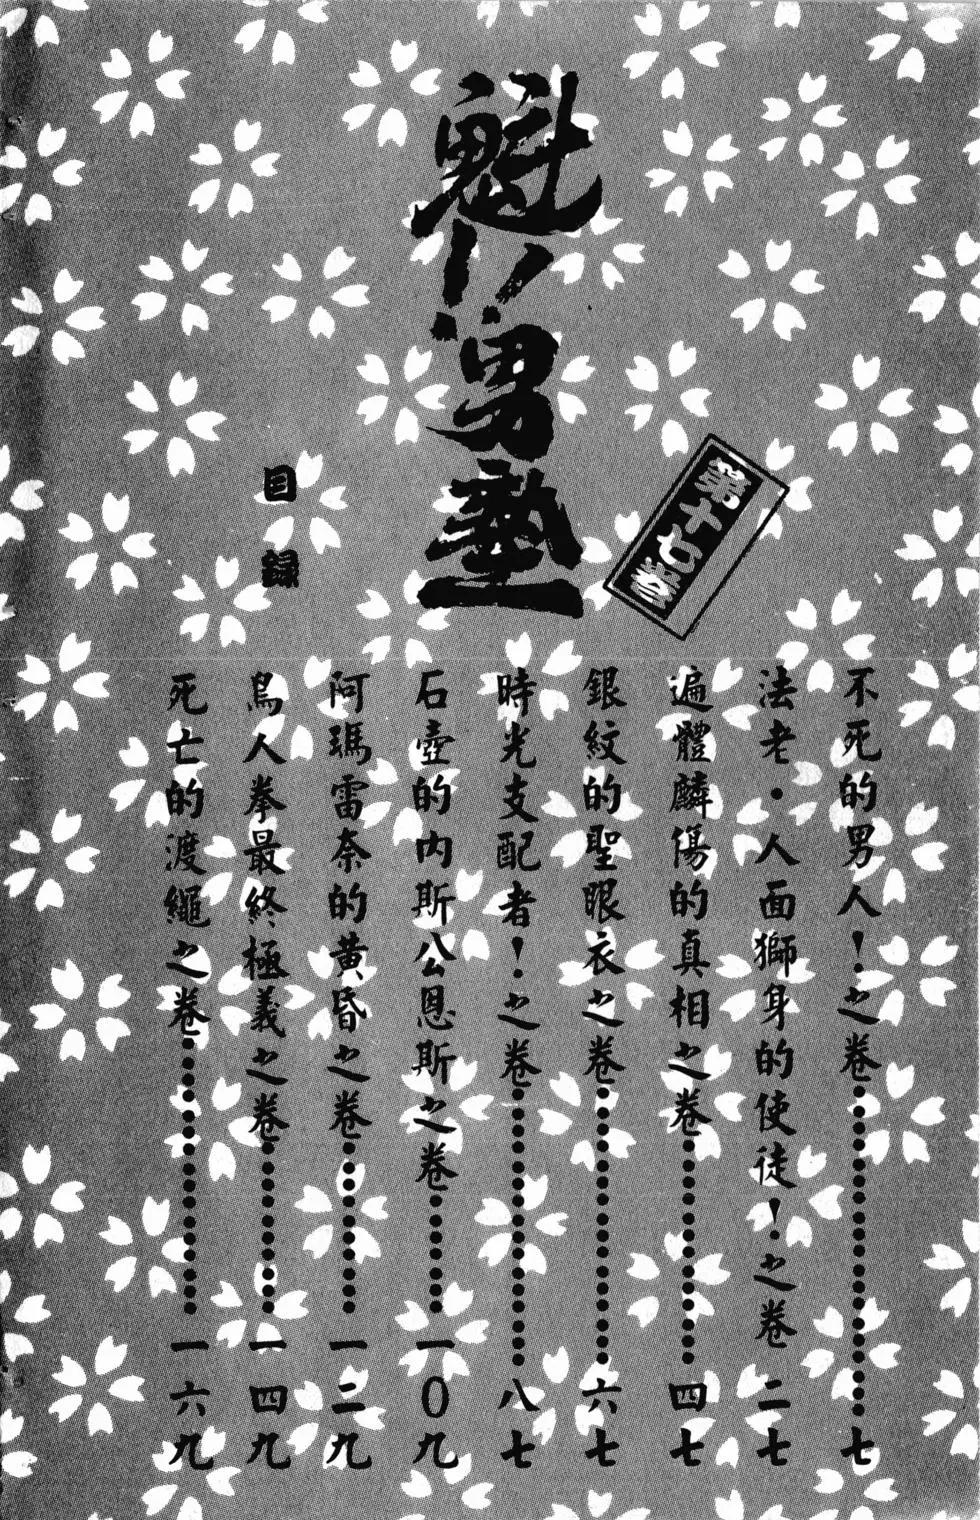 魁!!男塾
第十七卷
目錄
不死的男人!之卷……七
法老·人面獅身的使徒!之卷 二七
遍體麟傷的真相之卷……四七
銀紋的聖眼衣之卷……六七
時光支配者!之卷……八七
石壺的內斯公恩斯之卷……一0九
阿瑪雷奈的黃昏之卷……一二九
鳥人拳最終極義之卷……一四九
死亡的渡繩之卷……一六九